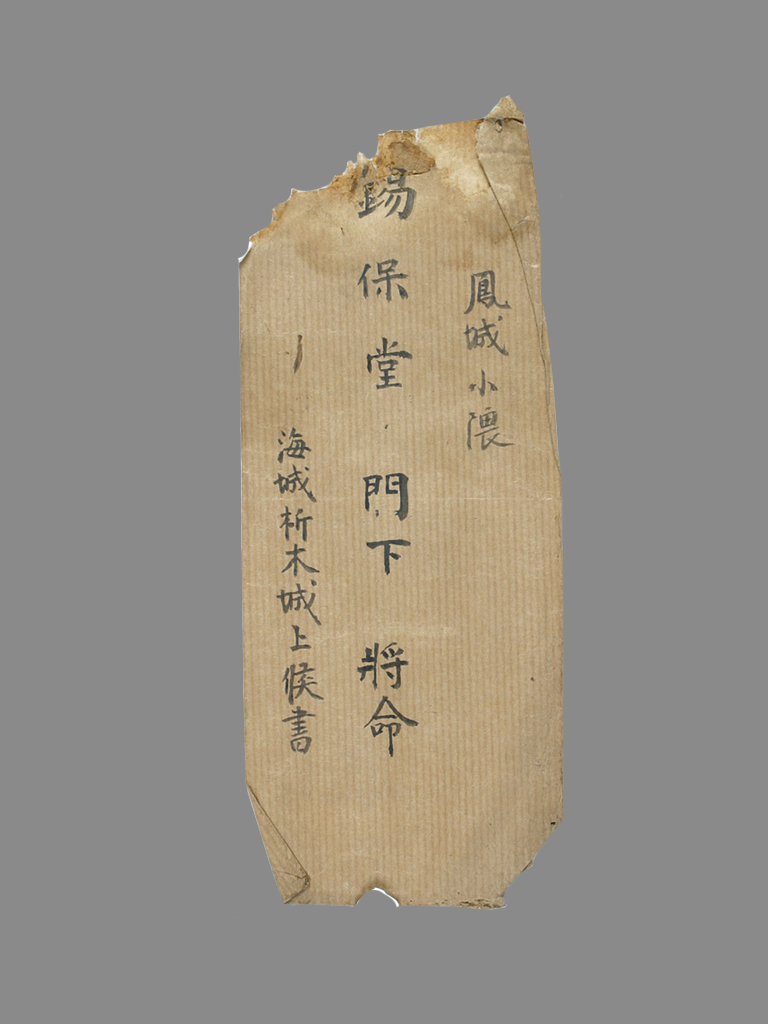 鳳城小隈
錫保堂門下將命
海城析木城上候書